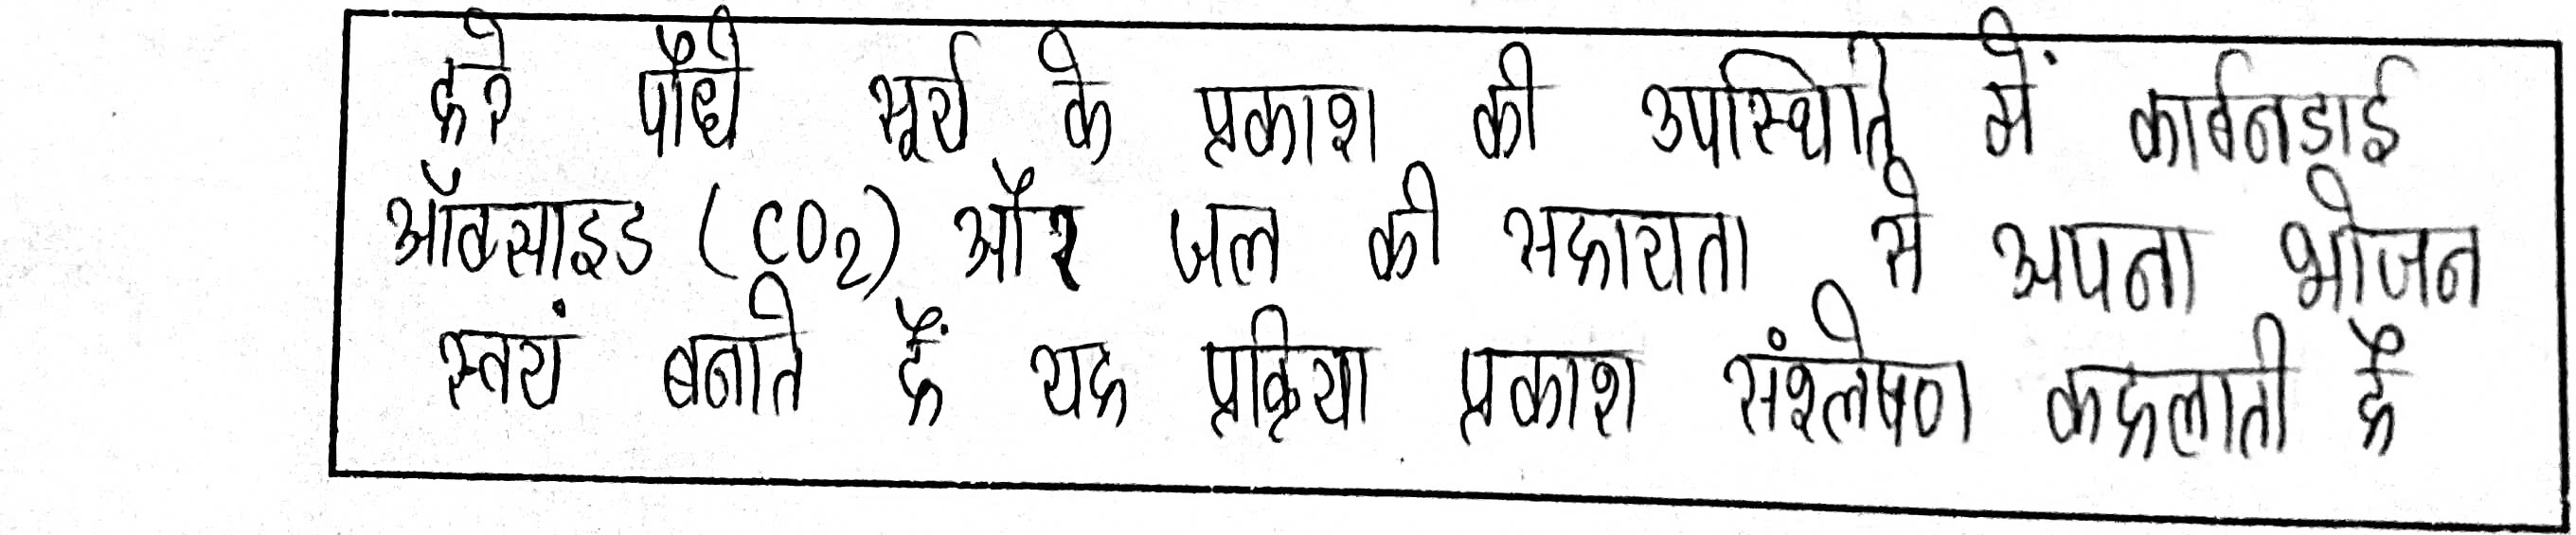 हरे पौधे सूर्य के प्रकाश की उपस्थिति में कार्बनडाई
ऑक्साइड (CO2) और जल की सहायता से अपना भोजन
स्वयं बनाते हैं यह प्रक्रिया प्रकाश संश्लेषण कहलाती है